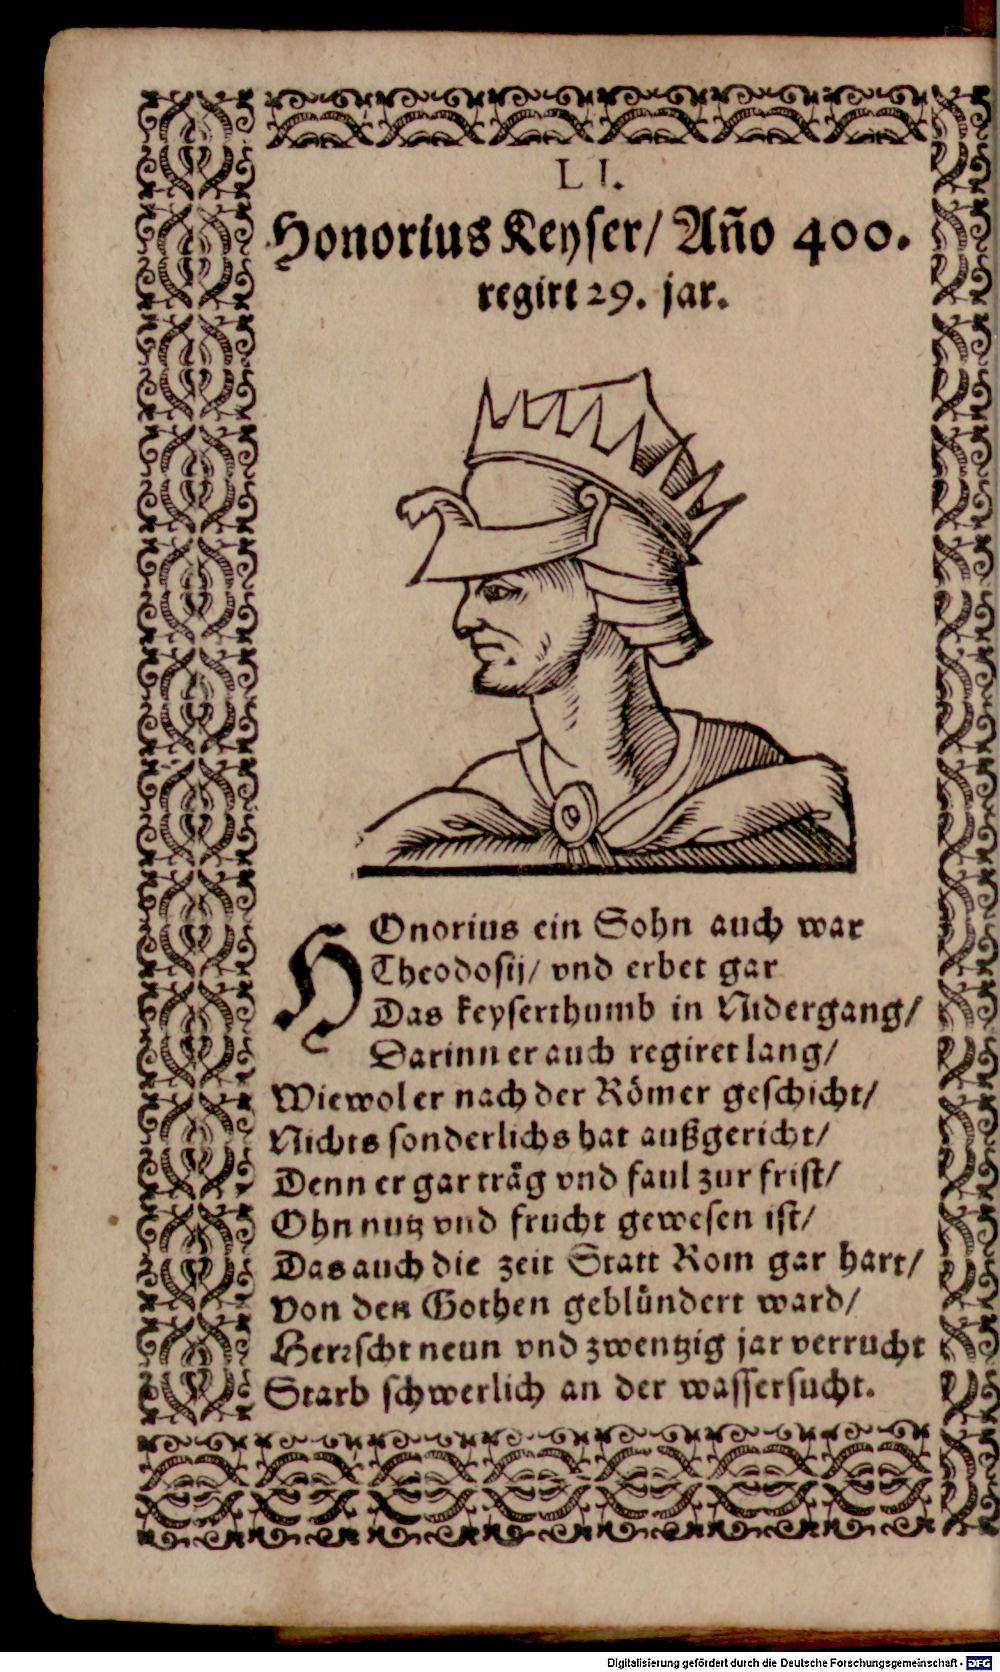 LI.
Honorius Keyser/ Año 400.
regirt 29. jar.
HOnorius ein Sohn auch war
Theodosij/ vnd erbet gar
Das keyserthumb in Nidergang/
Darinn er auch regiret lang/
Wiewol er nach der Römer geschicht/
Nichts sonderlichs hat außgericht/
Denn er gar träg vnd faul zur frist/
Ohn nutz vnd frucht gewesen ist/
Das auch die zeit Statt Rom gar hart/
Von den Gothen geblündert ward/
Herrscht neun vnd zwentzig jar verrucht
Starb schwerlich an der wassersucht.
Digitalisierung gefördert durch die Deutsche Forschungsgemeinschaft - DFG